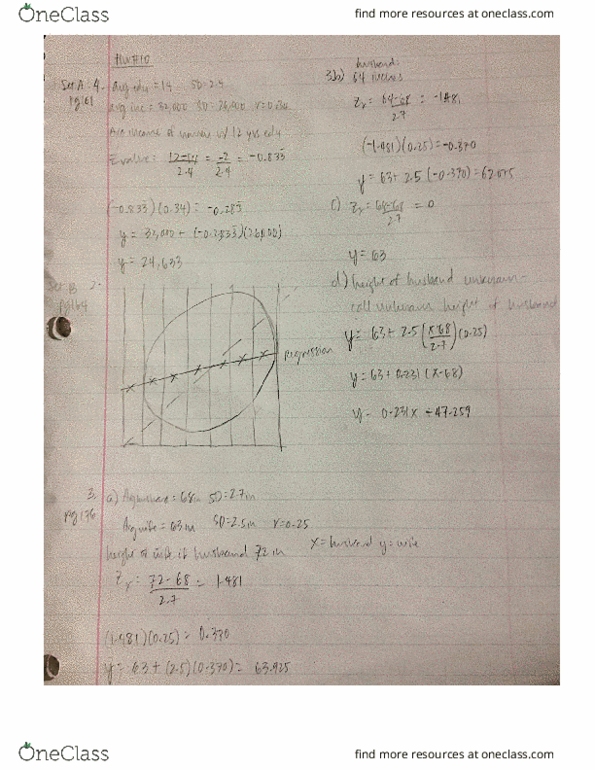 OneClass
find more resources at oneclass.com
HW#10
Set A 4.
pg 161
avg edu = 14 SD = 2.4
avg inc = 32,000 SD = 26,000 r = 0.34
Ave income of women w/ 12 yrs edu
Z value: 12-14 / 2.4 = -2 / 2.4 = -0.833
(-0.833)(0.34) = -0.283
y = 32,000 + (-0.2833)(26,000)
y = 24,633
Set B 2.
pg 164
regression
3.
pg 176
a) Avg husband = 68in SD = 2.7in
Avg wife = 63in SD = 2.5in r = 0.25
height of wife if husband 72 in
x = husband y = wife
Zx = 72-68 / 2.7 = 1.481
(1.481)(0.25) = 0.370
y = 63 + (2.5)(0.370) = 63.925
husband:
3b) 64 inches
Zx = 64-68 / 2.7 = -1.481
(-1.481)(0.25) = -0.370
y = 63 + 2.5 (-0.370) = 62.075
c) Zx = 68-68 / 2.7 = 0
y = 63
d) height of husband unknown
call unknown height of husband
y = 63 + 2.5 (x-68 / 2.7)(0.25)
y = 63 + 0.231 (x-68)
y = 0.231x + 47.259
OneClass
find more resources at oneclass.com